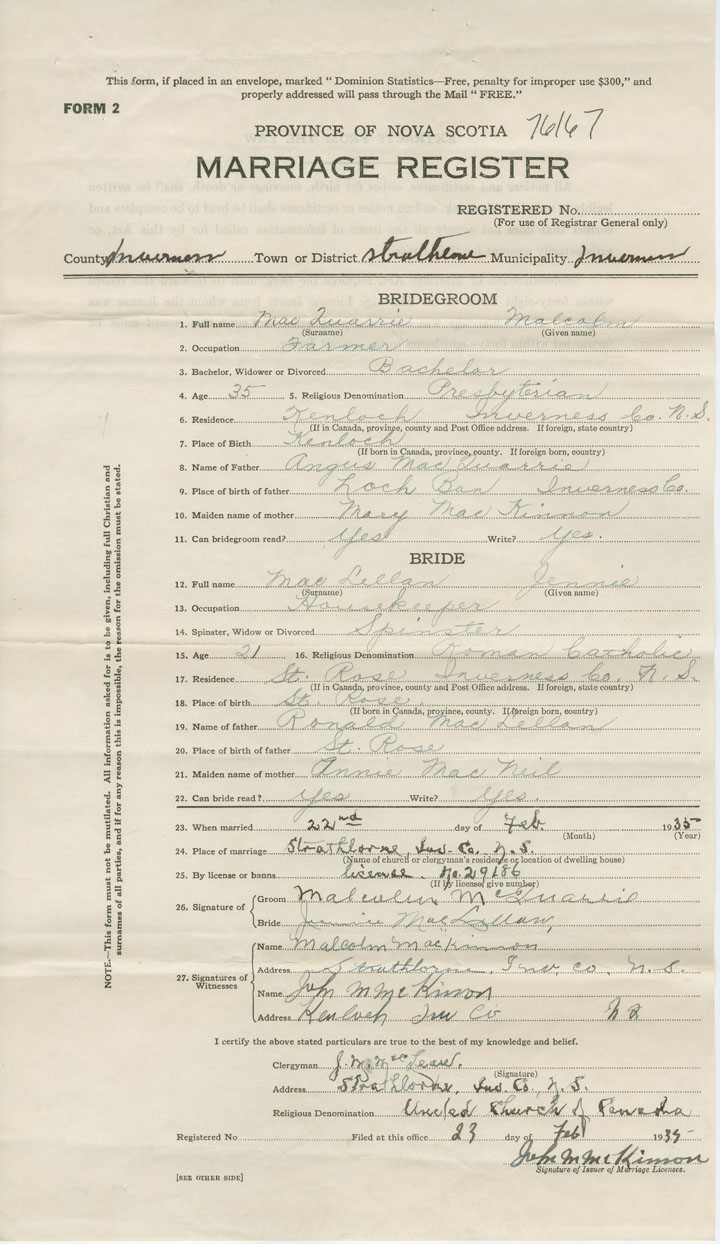 This form, if placed in an envelope, marked " Dominion Statistics—Free, penalty for improper use $300," and
properly addressed will pass through the Mail " FREE."
FORM 2
PROVINCE OF NOVA SCOTIA 76167
MARRIAGE REGISTER
REGISTERED No.
(For use of Registrar General only)
County Inverness Town or District Strathlorne Municipality Inverness
BRIDEGROOM
1. Full name Mac Quarrie Malcolm
(Surname) (Given name)
2. Occupation Farmer
3. Bachelor, Widower or Divorced Bachelor
4. Age 35 5. Religious Denomination Presbyterian
6. Residence Kenloch Inverness Co. N.S.
(If in Canada, province, county and Post Office address. If foreign, state country)
7. Place of Birth Kenloch
(If born in Canada, province, county. If foreign born, country)
8. Name of Father Angus Mac Quarrie
9. Place of birth of father Loch Ban Inverness Co.
10. Maiden name of mother Mary Mac Kinnon
11. Can bridegroom read? Yes Write? Yes.
BRIDE
12. Full name Mac Lellan Jennie
(Surname) (Given name)
13. Occupation Housekeeper
14. Spinster, Widow or Divorced Spinster
15. Age 21 16. Religious Denomination Roman Catholic
17. Residence St. Rose Inverness Co. N.S.
(If in Canada, province, county and Post Office address. If foreign, state country)
18. Place of birth St. Rose.
(If born in Canada, province, county. If foreign born, country)
19. Name of father Ronald Mac Lellan
20. Place of birth of father St. Rose
21. Maiden name of mother Annie Mac Neil
22. Can bride read? Yes Write? Yes.
23. When married 22nd day of Feb. 1935
(Month) (Year)
24. Place of marriage Strathlorne, Inv. Co. N.S.
(Name of church or clergyman's residence or location of dwelling house)
25. By license or banns license. No. 29186
(If by license, give number)
26. Signature of Groom Malcolm McQuarrie
Bride Jennie MacLellan,
27. Signatures of Witnesses Name Malcolm MacKinnon
Address Strathlorne, Inv. co, N.S.
Name John M McKinnon
Address Kenloch Inv Co NS
I certify the above stated particulars are true to the best of my knowledge and belief.
Clergyman J. M. McLean.
(Signature)
Address Strathlorne, Inv. Co., N.S.
Religious Denomination United Church of Canada
Registered No Filed at this office 23 day of Feb 1935
John M McKinnon
Signature of Issuer of Marriage Licenses.
[SEE OTHER SIDE]
NOTE.—This form must not be mutilated. All information asked for is to be given, including full Christian and
surnames of all parties, and if for any reason this is impossible, the reason for the omission must be stated.